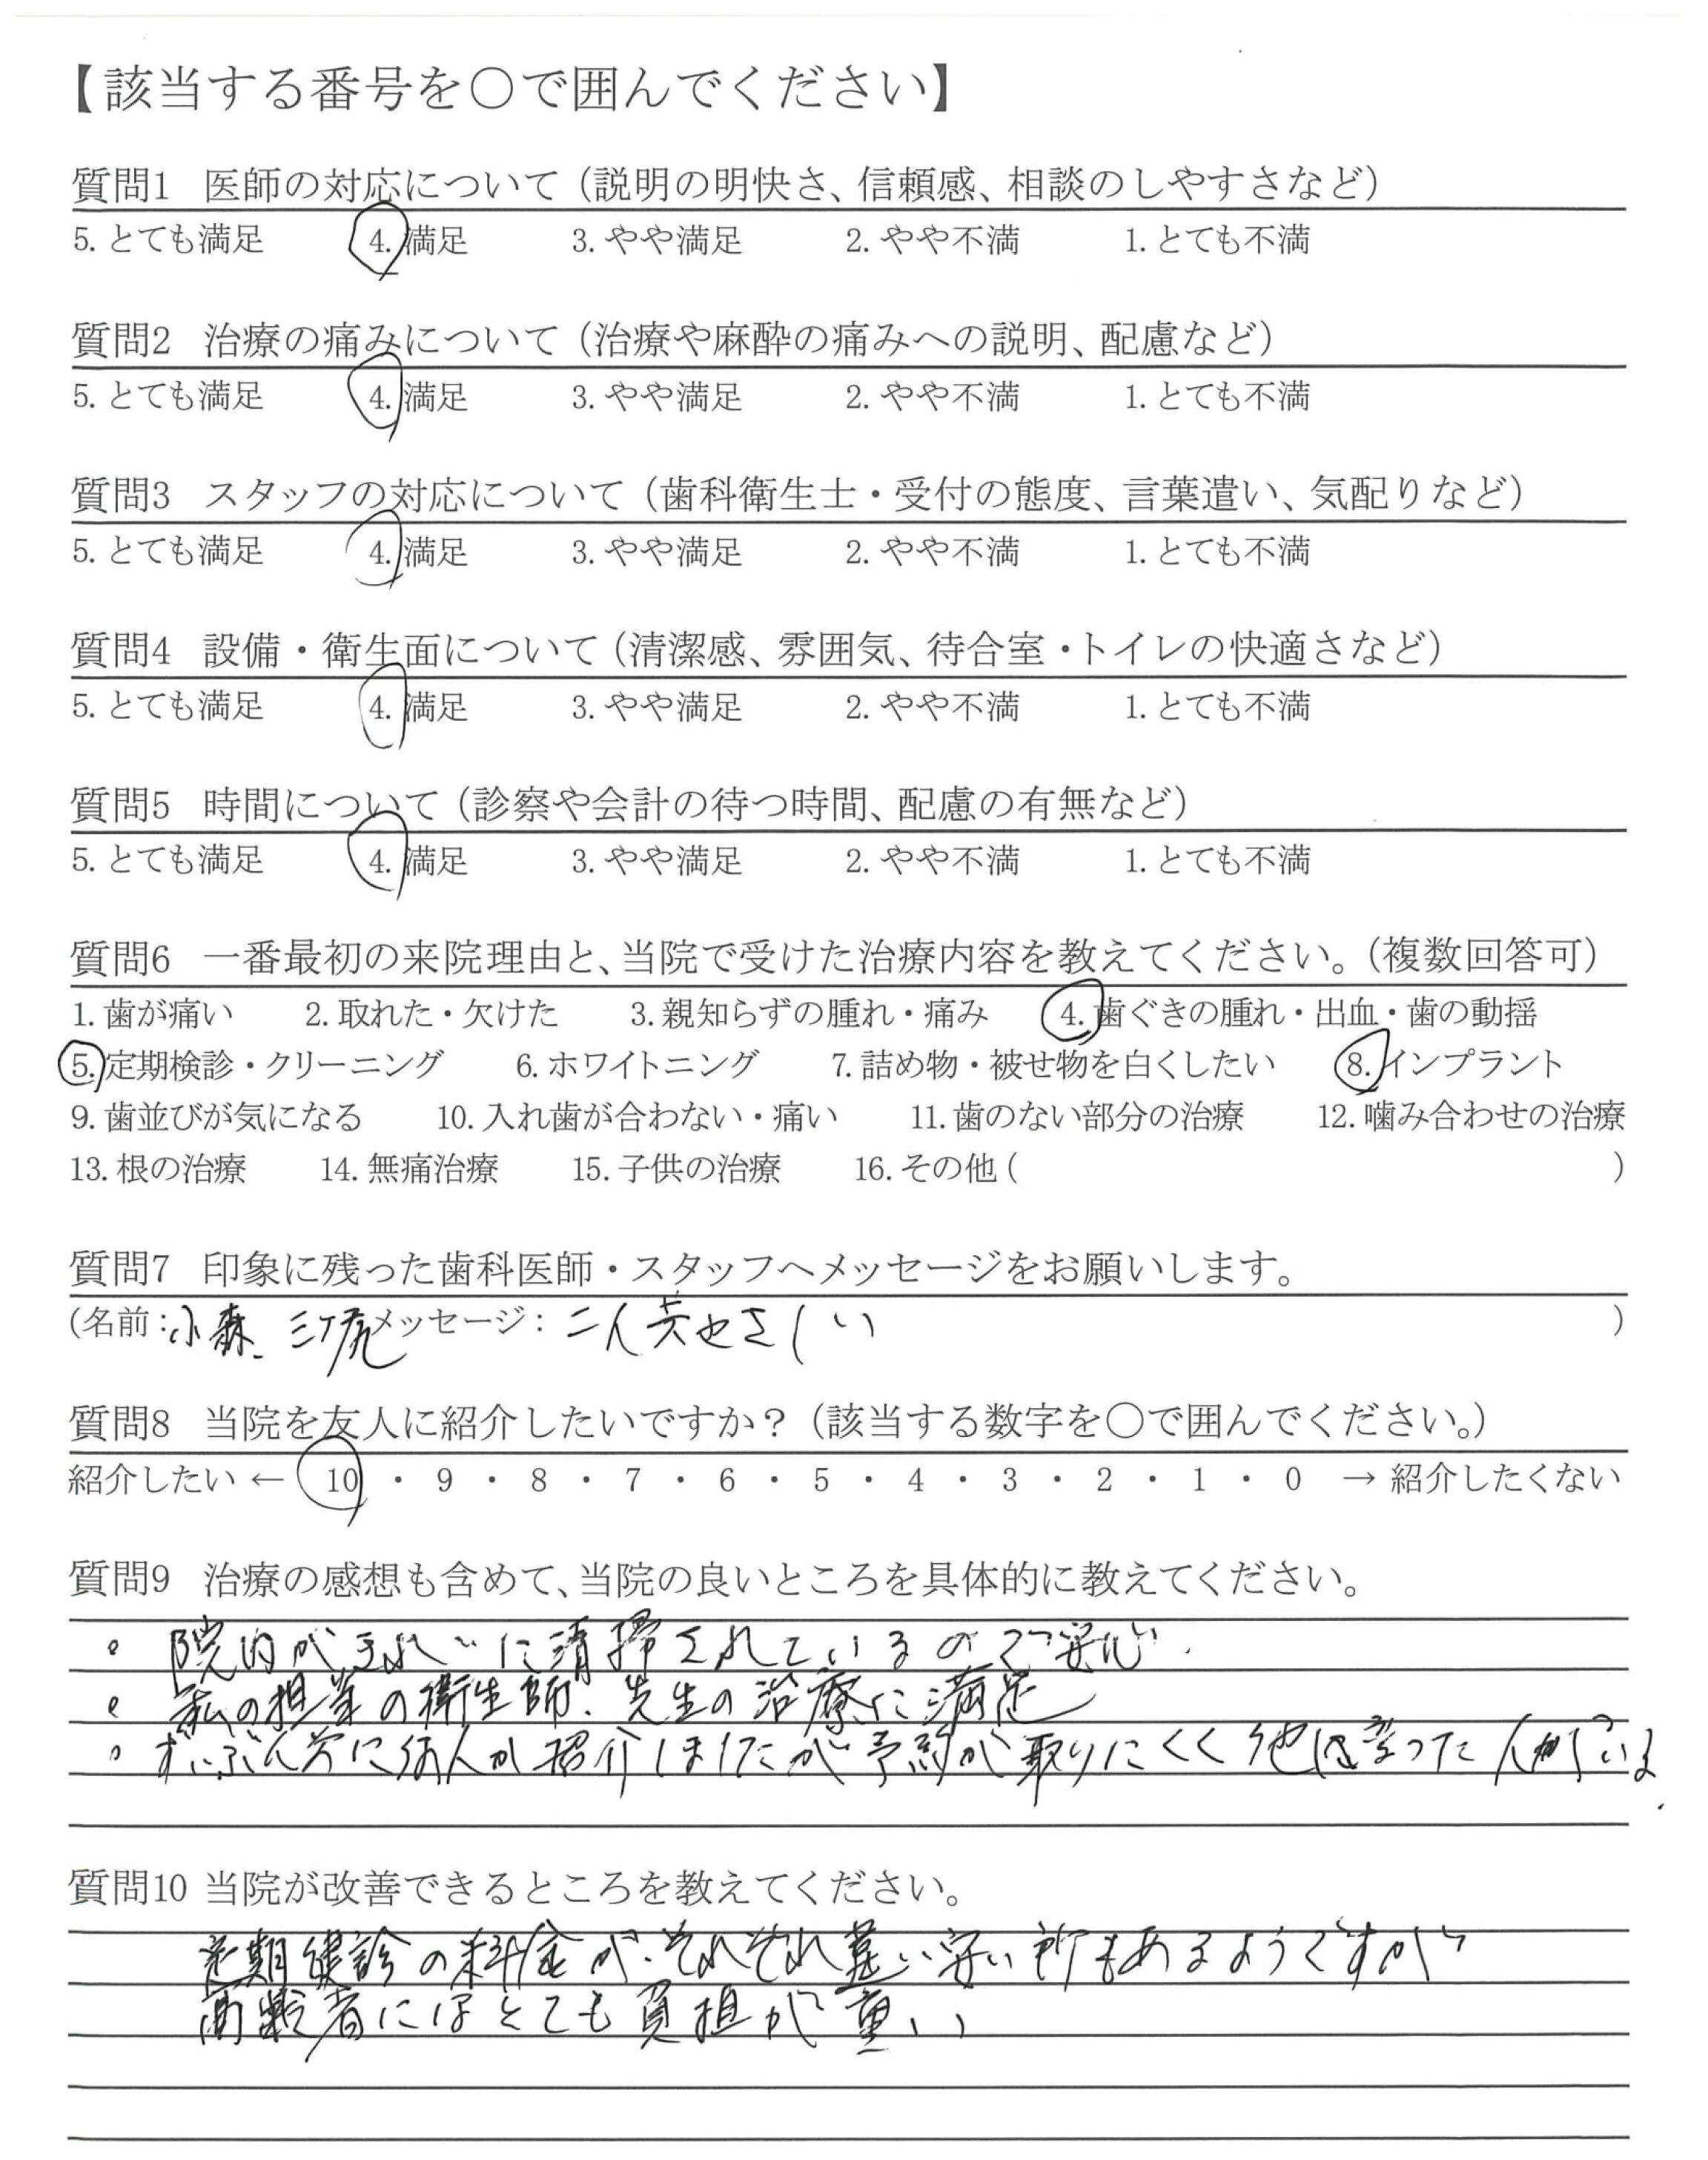 【該当する番号を〇で囲んでください】
質問1 医師の対応について（説明の明快さ、信頼感、相談のしやすさなど）
5. とても満足 4. 満足 3. やや満足 2. やや不満 1. とても不満
質問2 治療の痛みについて（治療や麻酔の痛みへの説明、配慮など）
5. とても満足 4. 満足 3. やや満足 2. やや不満 1. とても不満
質問3 スタッフの対応について（歯科衛生士・受付の態度、言葉遣い、気配りなど）
5. とても満足 4. 満足 3. やや満足 2. やや不満 1. とても不満
質問4 設備・衛生面について（清潔感、雰囲気、待合室・トイレの快適さなど）
5. とても満足 4. 満足 3. やや満足 2. やや不満 1. とても不満
質問5 時間について（診察や会計の待つ時間、配慮の有無など）
5. とても満足 4. 満足 3. やや満足 2. やや不満 1. とても不満
質問6 一番最初の来院理由と、当院で受けた治療内容を教えてください。（複数回答可）
1. 歯が痛い 2. 取れた・欠けた 3. 親知らずの腫れ・痛み 4. 歯ぐきの腫れ・出血・歯の動揺
5. 定期検診・クリーニング 6. ホワイトニング 7. 詰め物・被せ物を白くしたい 8. インプラント
9. 歯並びが気になる 10. 入れ歯が合わない・痛い 11. 歯のない部分の治療 12. 噛み合わせの治療
13. 根の治療 14. 無痛治療 15. 子供の治療 16. その他 ( )
質問7 印象に残った歯科医師・スタッフへメッセージをお願いします。
(名前：小森、三ケ尻 メッセージ：二人共やさしい )
質問8 当院を友人に紹介したいですか？（該当する数字を〇で囲んでください。）
紹介したい ← 10 ・ 9 ・ 8 ・ 7 ・ 6 ・ 5 ・ 4 ・ 3 ・ 2 ・ 1 ・ 0 → 紹介したくない
質問9 治療の感想も含めて、当院の良いところを具体的に教えてください。
。院内がきれいに清掃されているので安心
。私の担当の衛生師、先生の治療に満足
。ずいぶん前に紹介しましたが予約が取りにくく他に変った人がいる
質問10 当院が改善できるところを教えてください。
定期健診の料金が、それぞれ違い安い所もあるようですが
高齢者にはとても負担が重い